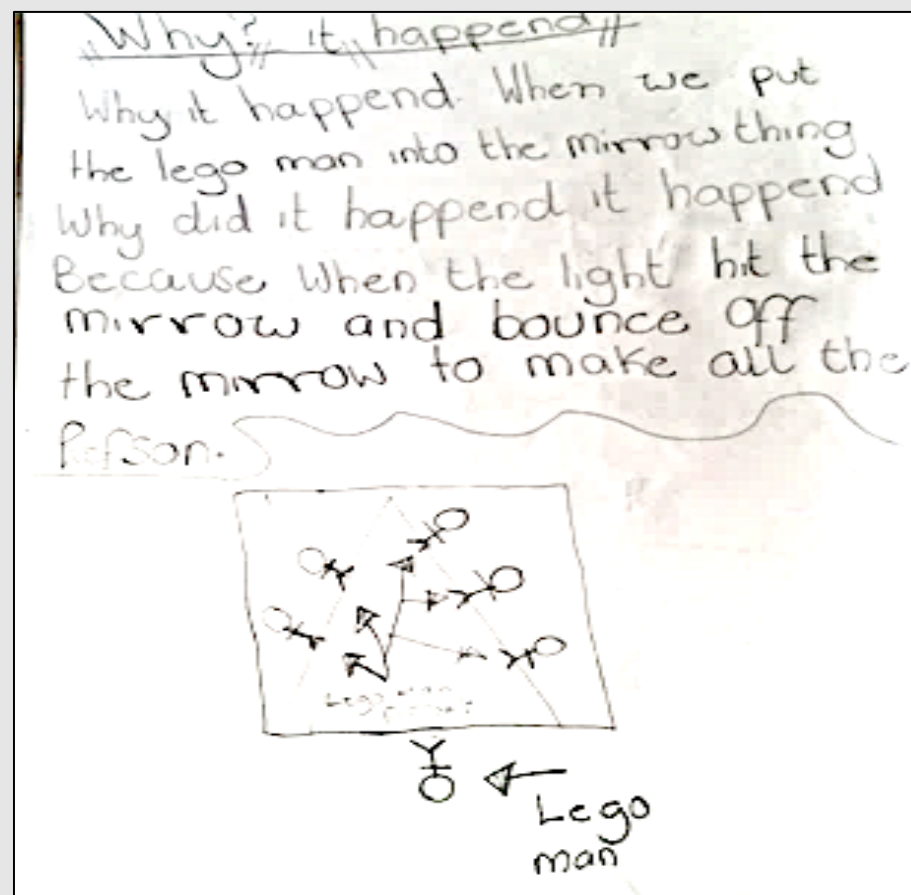 Why? it happend
Why it happend. When we put
the lego man into the mirrow thing
Why did it happend it happend
Because when the light hit the
mirrow and bounce off
the mirrow to make all the
Person.
Lego man
Lego
man